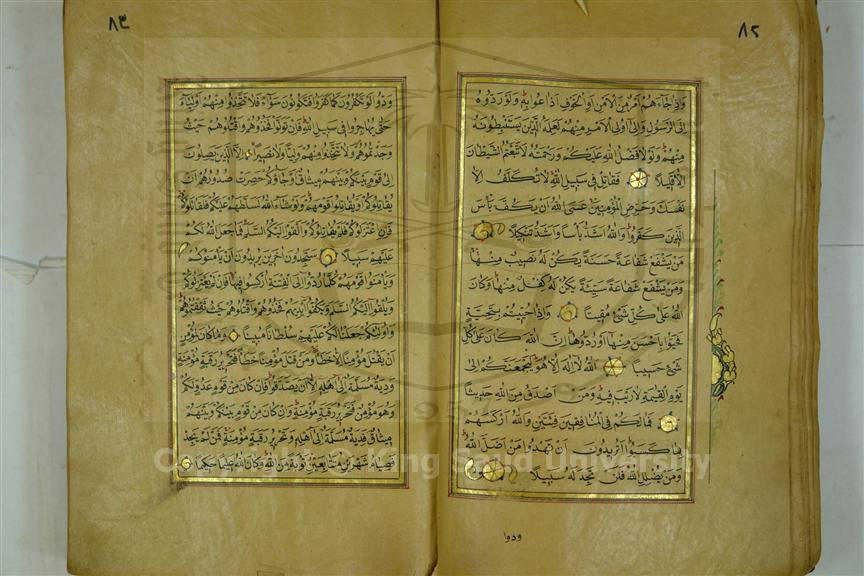 ٨٢
واذا جاءهم امر من الامن او الخوف اذاعوا به ولو ردوه
الى الرسول والى اولى الامر منهم لعلمه الذين يستنبطونه
منهم ولولا فضل الله عليكم ورحمته لاتبعتم الشيطان
الا قليلا فقاتل فى سبيل الله لا تكلف الا
نفسك وحرض المؤمنين عسى الله ان يكف بأس
الذين كفروا والله اشد بأسا واشد تنكيلا
من يشفع شفاعة حسنة يكن له نصيب منها
ومن يشفع شفاعة سيئة يكن له كفل منها وكان
الله على كل شئ مقيتا واذا حييتم بتحية
فحيوا باحسن منها او ردوها ان الله كان على كل
شئ حسيبا الله لا اله الا هو ليجمعنكم الى
يوم القيمة لا ريب فيه ومن اصدق من الله حديثا
فما لكم فى المنافقين فئتين والله اركسهم
بما كسبوا اتريدون ان تهدوا من اضل الله
ومن يضلل الله فلن تجد له سبيلا
ودوا
٨٣
ودوا لو تكفرون كما كفروا فتكونون سواء فلا تتخذوا منهم اولياء
حتى يهاجروا فى سبيل الله فان تولوا فخذوهم واقتلوهم حيث
وجدتموهم ولا تتخذوا منهم وليا ولا نصيرا الا الذين يصلون
الى قوم بينكم وبينهم ميثاق او جاؤكم حصرت صدورهم ان
يقاتلوكم او يقاتلوا قومهم ولو شاء الله لسلطهم عليكم فلقاتلوكم
فان اعتزلوكم فلم يقاتلوكم والقوا اليكم السلم فما جعل الله لكم
عليهم سبيلا ستجدون اخرين يريدون ان يأمنوكم
ويأمنوا قومهم كلما ردوا الى الفتنة اركسوا فيها فان لم يعتزلوكم
ويلقوا اليكم السلم ويكفوا ايديهم فخذوهم واقتلوهم حيث ثقفتموهم
واولئكم جعلنا لكم عليهم سلطانا مبينا وما كان لمؤمن
ان يقتل مؤمنا الا خطأ ومن قتل مؤمنا خطأ فتحرير رقبة مؤمنة
ودية مسلمة الى اهله الا ان يصدقوا فان كان من قوم عدو لكم
وهو مؤمن فتحرير رقبة مؤمنة وان كان من قوم بينكم وبينهم
ميثاق فدية مسلمة الى اهله وتحرير رقبة مؤمنة فمن لم يجد
فصيام شهرين متتابعين توبة من الله وكان الله عليما حكيما
Copyright © King Saud University